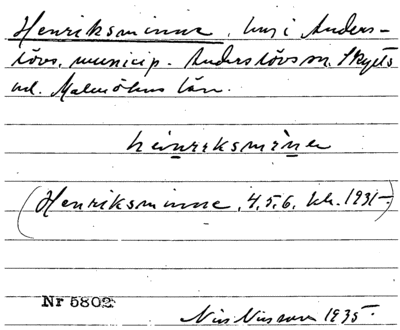 Henriksminne, hus i Anders-
lövs municip. Anderslövs sn. Skytts
hd. Malmöhus län.
hèinriksmìnen
(Henriksminne, 4, 5, 6, kh. 1931-)
Nr 5802
Nils Nilsson 1935